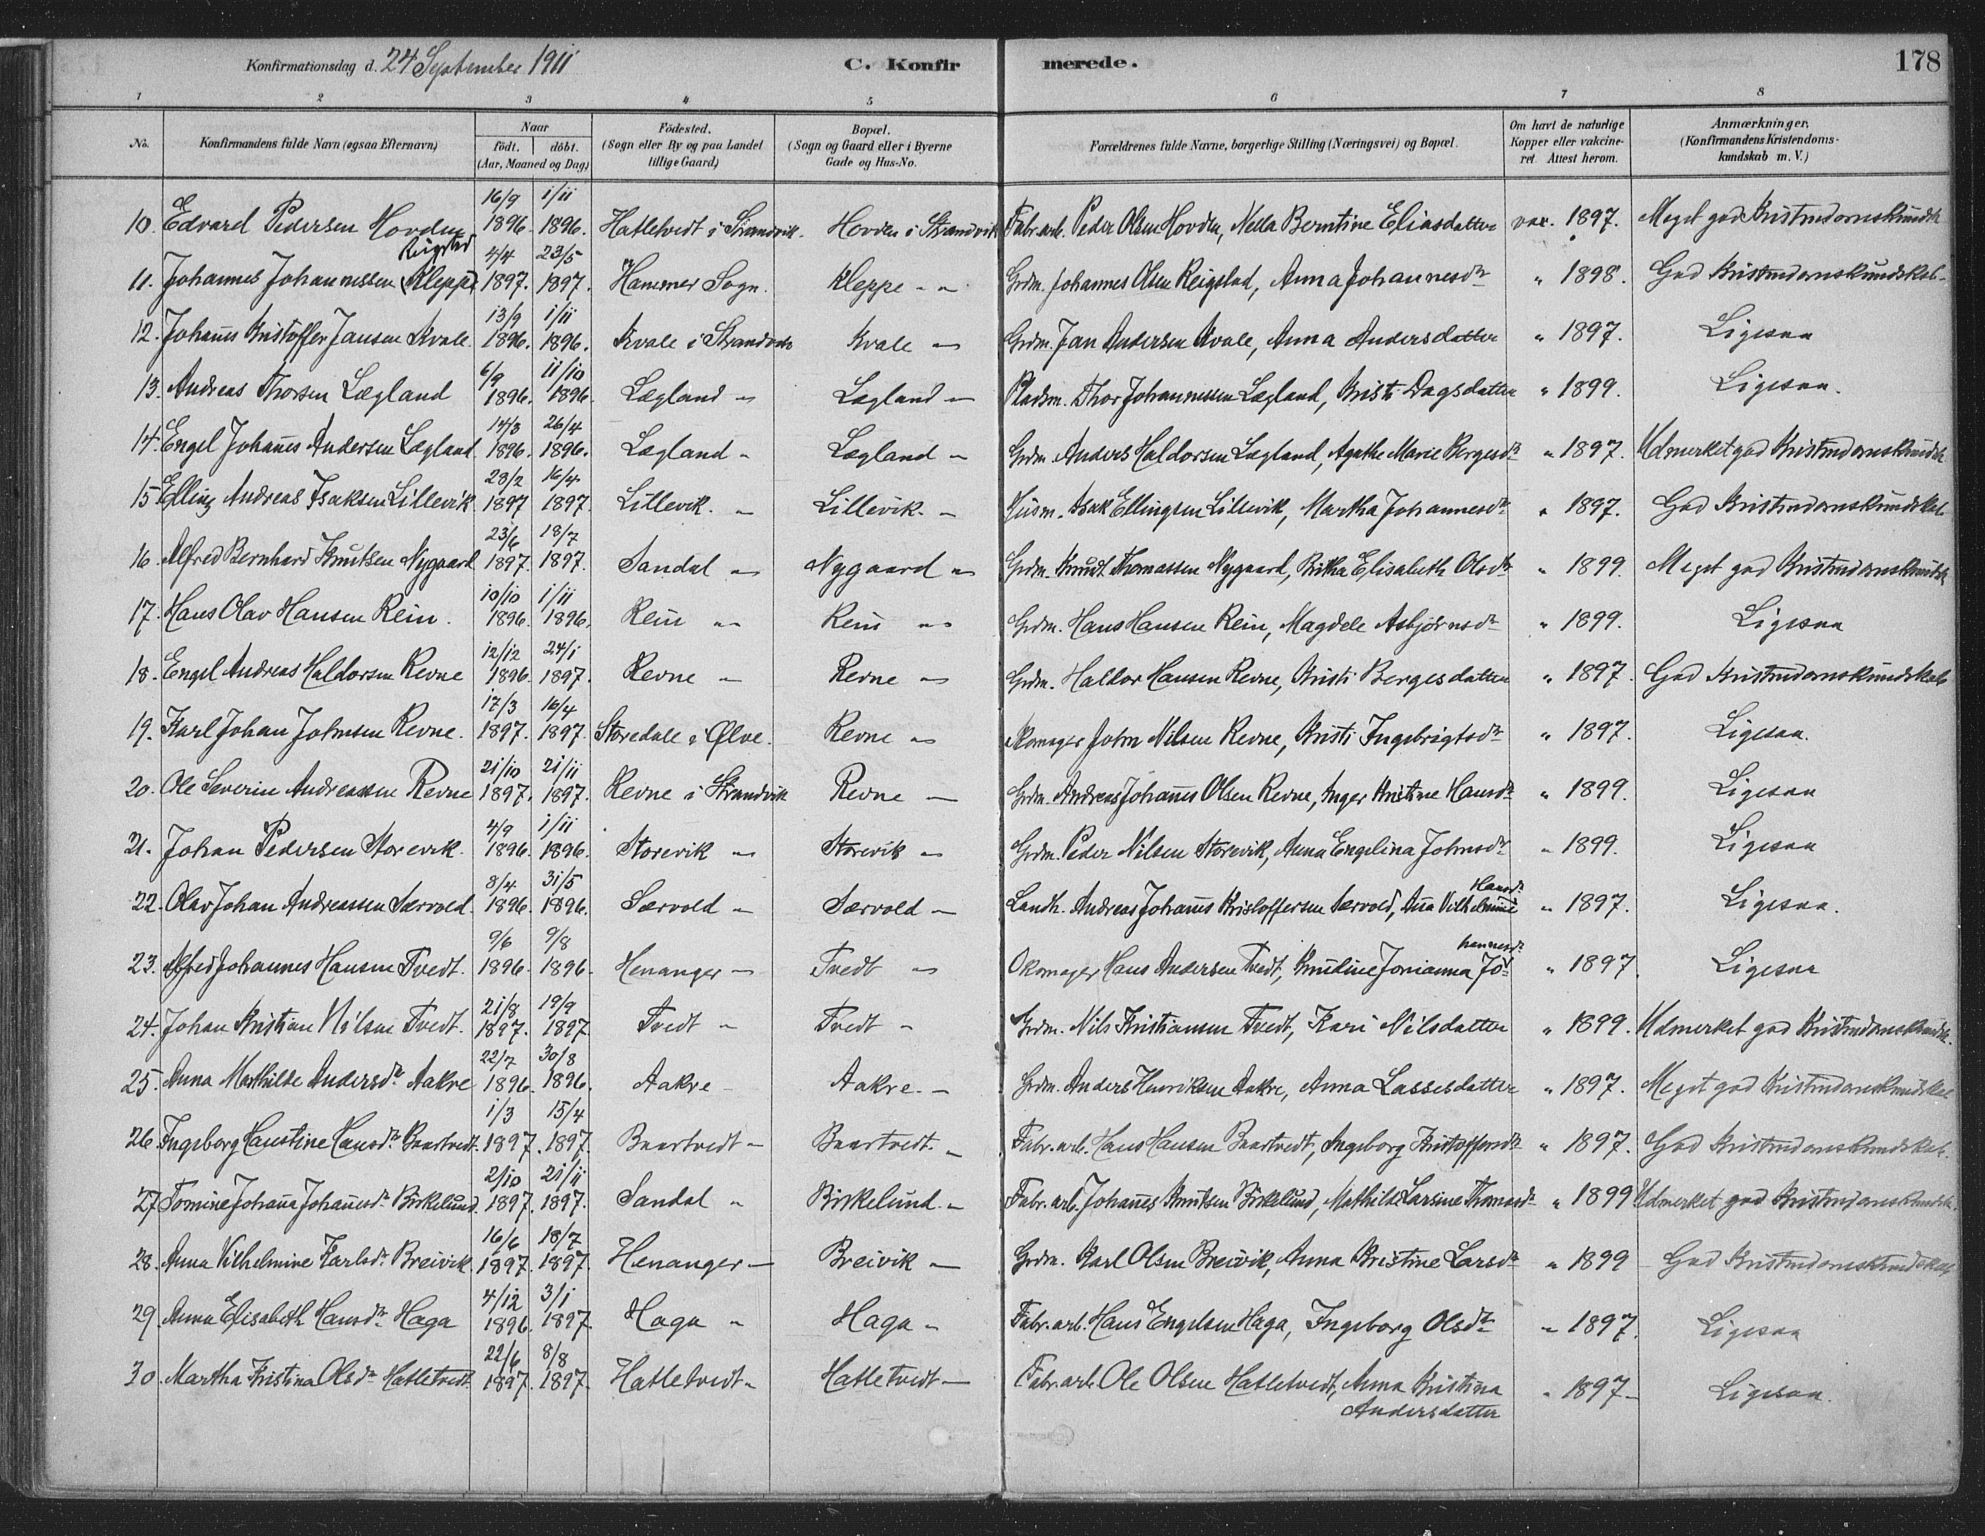 Konfirmationsdag d. 24 September 1911 C. Konfirmerede. 178
1 2 3 4 5 6 7 8
No. Konfirmandens fulde Navn (ogsaa Efternavn) Naar født. døbt. (Aar, Maaned og Dag) Fødested. (Sogn eller By og paa Landet tillige Gaard) Bopæl. (Sogn og Gaard eller i Byerne Gade og Hus-No. Forældrenes fulde Navne, borgerlige Stilling (Næringsvei) og Bopæl. Om havt de naturlige Kopper eller vakcineret. Attest herom. Anmærkninger. (Konfirmandens Kristendomskundskab m. V.)
10. Edvard Pedersen Hovden 16/9 1896. 1/11 1896. Hatletvedt i Strandvik. Hovden i Strandvik Fabr. arb. Peder Olsen Hovden, Nella Berntine Eliasdatter vax. 1897. Meget god Kristendomskundsk
11. Johannes Johannessen Reigstad (Kleppe) 4/4 1897. 23/5 1897. Hammer Sogn. Kleppe " " Grdm. Johannes Olsen Reigstad, Anna Johannesdr " 1898. God Kristendomskundskab
12. Johans Kristoffer Jansen Kvale 13/9 1896. 1/11 1896. Kvale i Strandvik Kvale " Grdm. Jan Andersen Kvale, Anna Andersdatter " 1897. Ligesaa
13. Andreas Thorsen Lægland 6/9 1896. 11/10 1896. Lægland " Lægland " Pladsm. Thor Johannessen Lægland, Kristi Dagsdatter " 1899. Ligesaa.
14. Engel Johans Andersen Lægland 14/3 1896. 26/4 1896. Lægland " Lægland " Grdm. Anders Haldorsen Lægland, Agathe Marie Bergesdr " 1897. Udmerket god Kristendomskundsk
15. Elling Andreas Isaksen Lillevik 28/2 1897 16/4 1897. Lillevik. " Lillevik. " Husm. Isak Ellingsen Lillevik, Martha Johannesdr " 1897. God Kristendomskundskab
16. Alfred Bernhard Knutsen Nygaard 23/6 1897. 18/7 1897. Sandal " Nygaard " Grdm. Knut Thomassen Nygaard, Britha Elisabeth Olsdr " 1899. Meget god Kristendomskundsk
17. Hans Olav Hansen Rein. 10/10 1896. 1/11 1896. Rein " Rein " Grdm. Hans Hansen Rein, Magdele Asbjørnsdr " 1899. Ligesaa
18. Engel Andreas Haldorsen Revne 12/12 1896. 24/1 1897. Revne " Revne " Grdm. Haldor Hansen Revne, Kristi Bergesdatter " 1897. God Kristendomskundskab
19. Karl Johan Johnsen Revne. 17/3 1897. 16/4 1897. Storedale i Ølve. Revne " Skomager John Nilsen Revne, Kristi Ingebrigtsdr " 1897. Ligesaa.
20. Ole Severin Andreassen Revne 21/10 1897. 21/11 1897. Revne i Strandvik Revne " Grdm. Andreas Johans Olsen Revne, Inger Kristine Hansdr " 1899. Ligesaa
21. Johan Pedersen Storevik. 4/9 1896. 1/11 1896. Storevik " Storevik " Grdm. Peder Nilsen Storevik, Anna Engelina Johnsdr " 1899. Ligesaa
22. Olav Johan Andreassen Særvold. 8/4 1896. 31/5 1896. Særvold " Særvold " Landh. Andreas Johans Kristoffersen Særvold, Ana Vilhelmine Hansdr " 1897. Ligesaa.
23. Alfred Johannes Hansen Tvedt. 9/6 1896. 9/8 1896. Henanger " Tvedt " Skomager Hans Andersen Tvedt, Knudine Jonianna Johannesdr " 1897. Ligesaa
24. Johan Kristian Nilsen Tvedt. 21/8 1897. 19/9 1897 Tvedt " Tvedt " Grdm. Nils Kristiansen Tvedt, Kari Nilsdatter " 1899. Udmerket god Kristendomskundsk.
25. Anna Mathilde Andersdr Aakre 22/7 1896. 30/8 1896. Aakre " Aakre. " Grdm. Anders Henriksen Aakre, Anna Lassesdatter " 1897. Meget god Kristendomskundskab
26. Ingeborg Haustine Hansdr Baartvedt. 1/3 1897. 15/4 1897. Baartvedt " Baartvedt. " Fabr. arb. Hans Hansen Baartvedt, Ingeborg Kristoffersdr " 1897. God Kristendomskundskab.
27. Tomine Johana Johansdr Birkelund. 2/10 1897. 21/11 1897. Sandal " Birkelund. " Fabr. arb. Johans Knutsen Birkelund, Mathilde Larsine Thomasdr " 1899 Udmerket god Kristendomskundsk.
28. Anna Vilhelmine Karlsdr Breivik 16/6 1897. 18/7 1897. Henanger " Breivik " Grdm. Karl Olsen Breivik, Anna Kristine Larsdr " 1899 God Kristendomskundskab
29. Anna Elisabeth Hansdr Haga 4/12 1896. 3/1 1897. Haga " Haga " Fabr. arb. Hans Engelsen Haga, Ingeborg Olsdr " 1897. Ligesaa
30. Martha Kristina Olsdr Hatletvedt 22/6 1897. 8/8 1897. Hatletvedt " Hatletvedt " Fabr. arb. Ole Olsen Hatletvedt, Anna Kristina Andersdatter " 1897 Ligesaa.